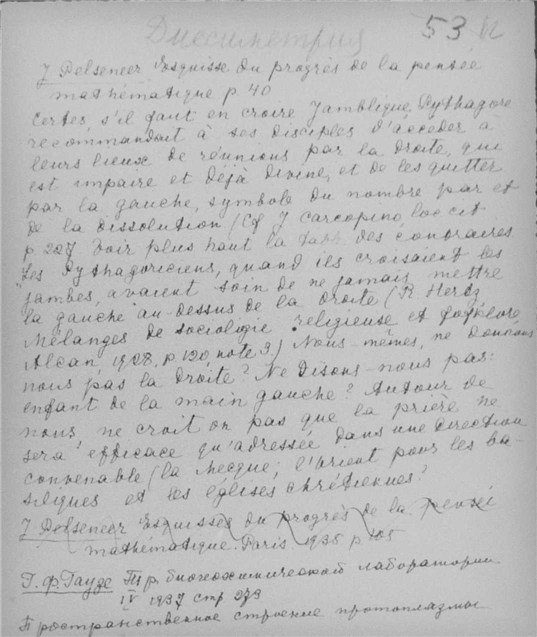 Диссиметрия
53
J Pelseneer Esquisse du progrès de la pensée
mathématique p 40
Certes s'il faut en croire Jamblique, Pythagore
recommandait à ses disciples d'accéder à
leurs lieux de réunions par la droite, qui
est impaire et déjà divine, et de les quitter
par la gauche, symbole du nombre pair et
de la dissolution (Cf J Carcopino loc cit
p 227 Voir plus haut la des contraires
"Les Pythagoriciens, quand ils croisaient les
jambes, avaient soin de ne jamais mettre
la gauche au-dessus de la droite (R. Hertz
Mélanges de sociologie religieuse et folklore
Alcan 1928, p 120, note 3.) Nous-mêmes, ne donnons
nous pas la droite? Ne disons-nous pas:
enfant de la main gauche? Autour de
nous, ne croit on pas que la prière ne
sera efficace qu'adressée dans une direction
convenable (la Mecque; l'Orient pour les ba-
siliques et les églises chrétiennes?
J Pelseneer Esquisses du progrès de la pensée
mathématique. Paris 1935 p 105
Г. Ф. Гаузе Тр. биогеохимической лаборатории
IV 1937 стр 273
Пространственное строение протоплазмы